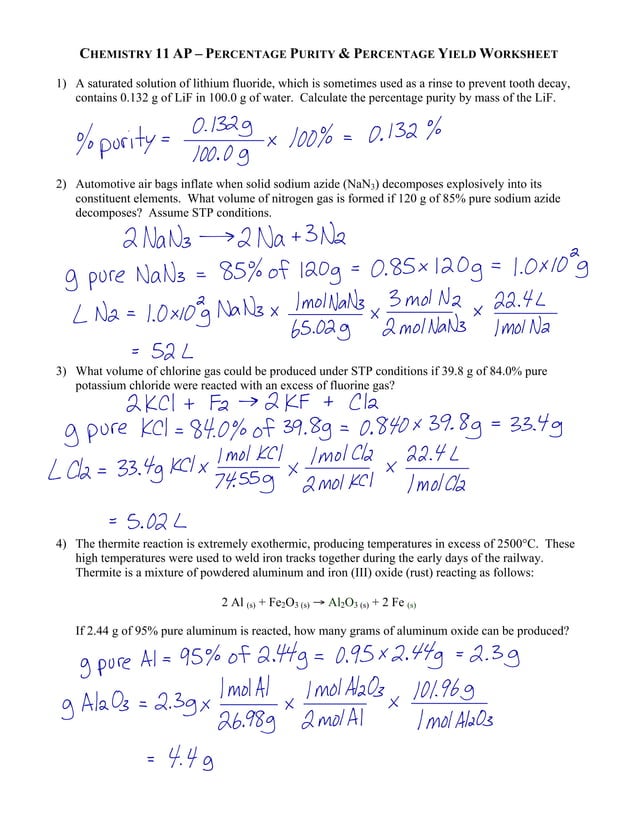 CHEMISTRY 11 AP – PERCENTAGE PURITY & PERCENTAGE YIELD WORKSHEET
1) A saturated solution of lithium fluoride, which is sometimes used as a rinse to prevent tooth decay,
contains 0.132 g of LiF in 100.0 g of water. Calculate the percentage purity by mass of the LiF.
% purity = 0.132g / 100.0 g × 100% = 0.132 %
2) Automotive air bags inflate when solid sodium azide (NaN₃) decomposes explosively into its
constituent elements. What volume of nitrogen gas is formed if 120 g of 85% pure sodium azide
decomposes? Assume STP conditions.
2 NaN₃ → 2 Na + 3 N₂
g pure NaN₃ = 85% of 120g = 0.85 × 120g = 1.0×10² g
L N₂ = 1.0×10² g NaN₃ × 1 mol NaN₃ / 65.02 g × 3 mol N₂ / 2 mol NaN₃ × 22.4 L / 1 mol N₂
= 52 L
3) What volume of chlorine gas could be produced under STP conditions if 39.8 g of 84.0% pure
potassium chloride were reacted with an excess of fluorine gas?
2 KCl + F₂ → 2 KF + Cl₂
g pure KCl = 84.0% of 39.8g = 0.840 × 39.8g = 33.4g
L Cl₂ = 33.4g KCl × 1 mol KCl / 74.55g × 1 mol Cl₂ / 2 mol KCl × 22.4 L / 1 mol Cl₂
= 5.02 L
4) The thermite reaction is extremely exothermic, producing temperatures in excess of 2500°C. These
high temperatures were used to weld iron tracks together during the early days of the railway.
Thermite is a mixture of powdered aluminum and iron (III) oxide (rust) reacting as follows:
2 Al (s) + Fe₂O₃ (s) → Al₂O₃ (s) + 2 Fe (s)
If 2.44 g of 95% pure aluminum is reacted, how many grams of aluminum oxide can be produced?
g pure Al = 95% of 2.44g = 0.95 × 2.44g = 2.3g
g Al₂O₃ = 2.3g × 1 mol Al / 26.98g × 1 mol Al₂O₃ / 2 mol Al × 101.96g / 1 mol Al₂O₃
= 4.4 g